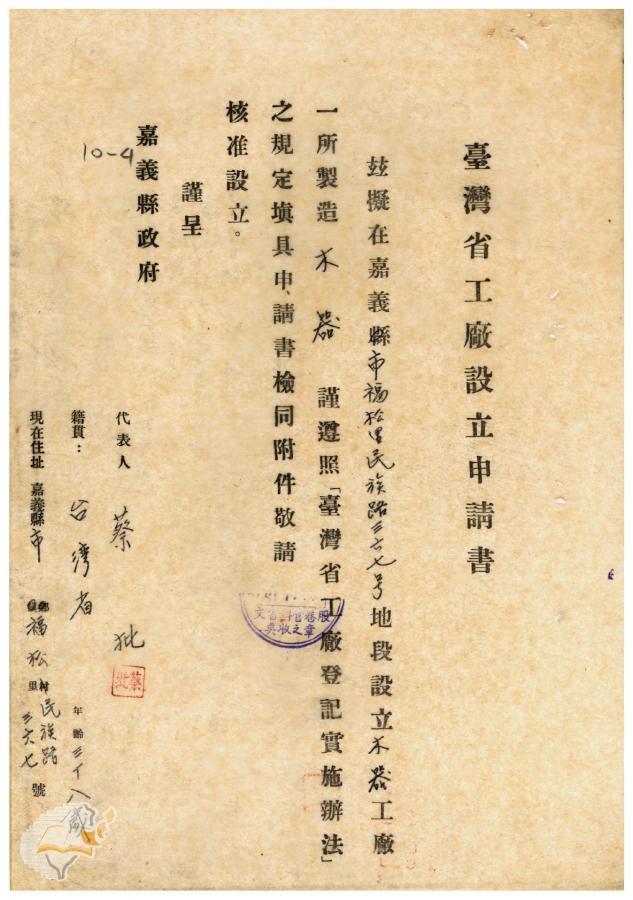 臺灣省工廠設立申請書
玆擬在嘉義縣市福松里民族路三六七号地段設立木器工廠
一所製造木器謹遵照「臺灣省工廠登記實施辦法」
之規定填具申請書檢同附件敬請
核准設立。
謹呈
嘉義縣政府
10-4
代表人 蔡批
籍貫：台灣省 年齡三十八歲
現在住址 嘉義縣市 福松里 村 民族路三六七號
蔡批